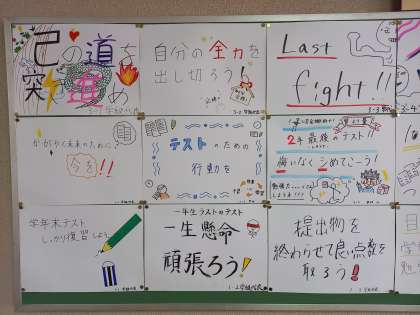 己の道を
突き進め
自分の全力を
出し切ろう!
Last
fight!!
かがやく未来のために
今を!!
テストのための
行動を
2年最後のテスト!!
悔いなくシめてこーう!
学年末テスト
しっかり復習しよう
一年生ラストのテスト
一生懸命
頑張ろう!
提出物を
終わらせて良い点数を
取ろう!